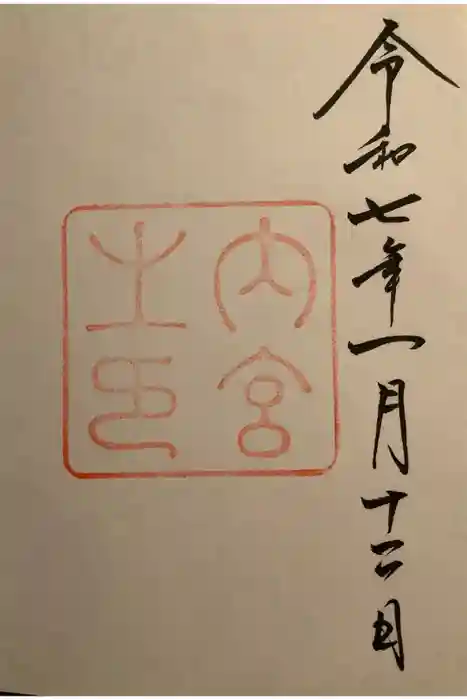 令和七年一月十二日
内宮
之印